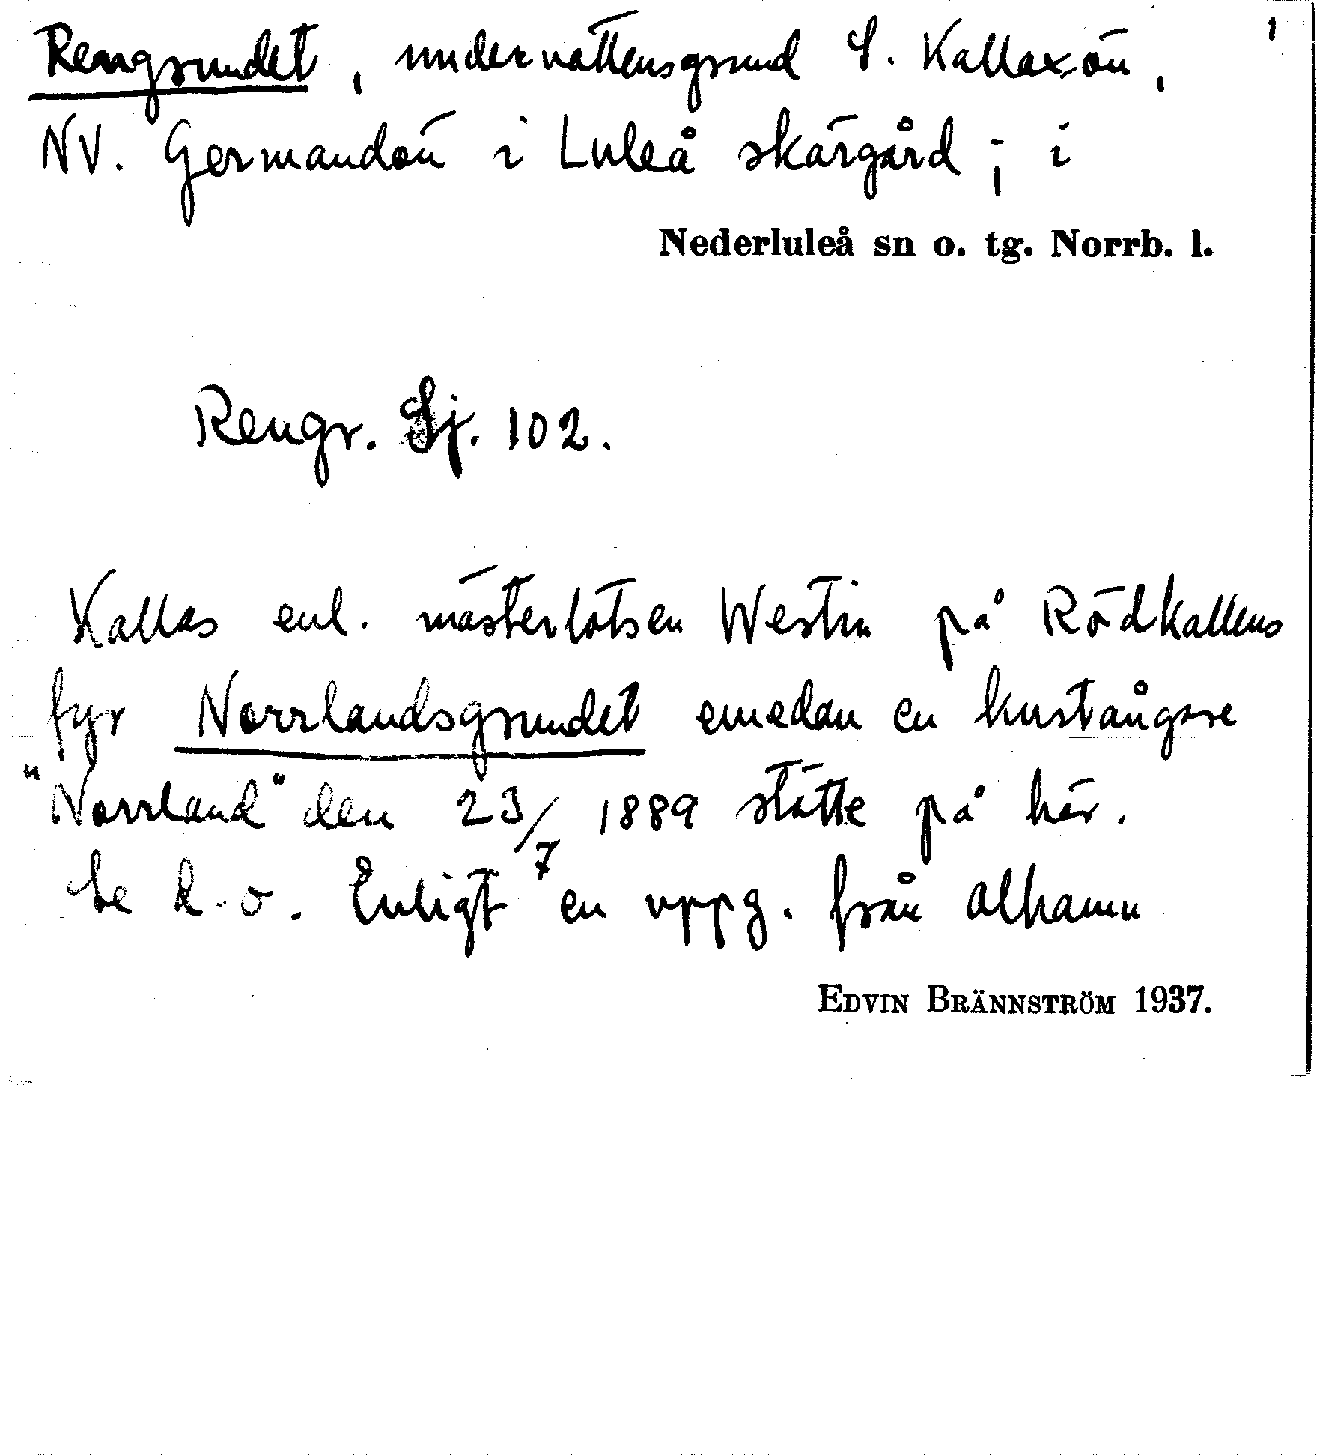 1
Rengrundet, undervattensgrund S. Kallaxön,
NV. Germandön i Luleå skärgård; i
Nederluleå sn o. tg. Norrb. l.
Rengr. Sj. 102.
Kallas enl. mästerlotsen Westin på Rödkallens
fyr Norrlandsgrundet emedan en kustångare
"Norrland" den 23/7 1889 stötte på här.
Se d. o. Enligt en uppg. från Alhamn
EDVIN BRÄNNSTRÖM 1937.